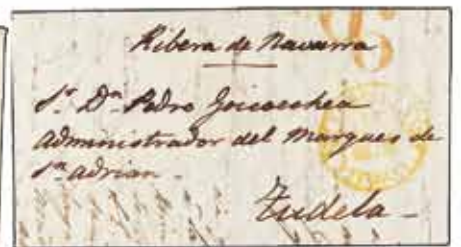 Ribera de Navarra
Sr. Dn. Pedro Goicoechea
Administrador del Marques de
Sn. Adrian.
Tudela